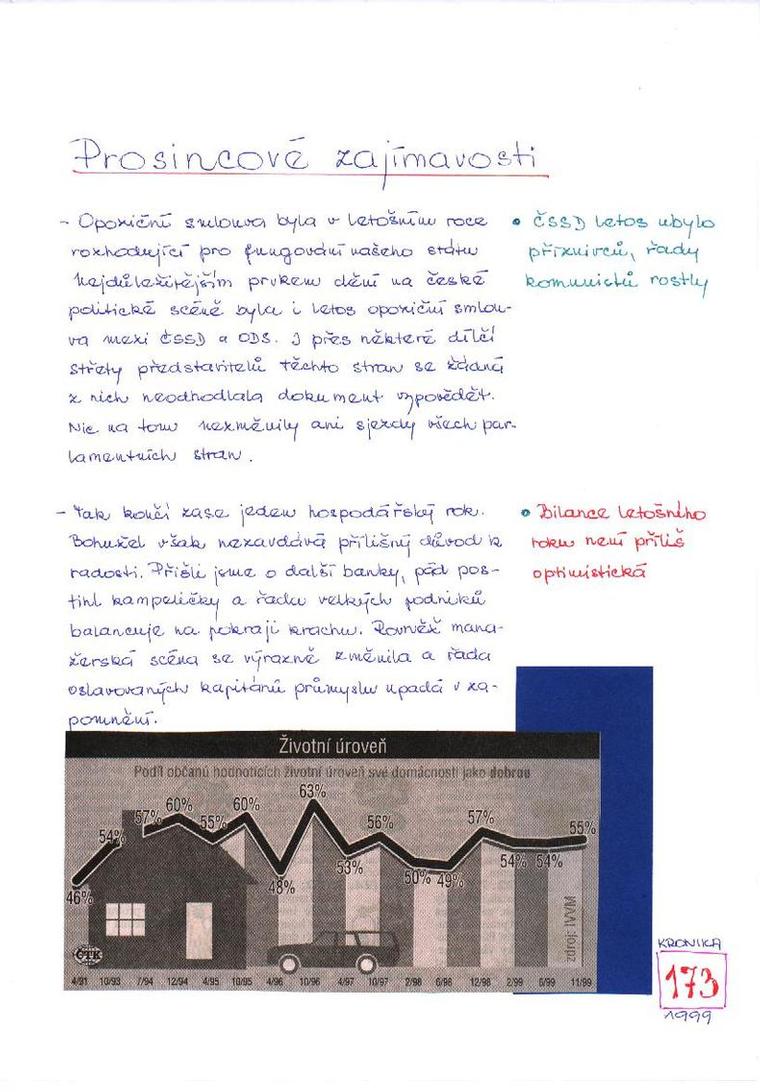 Prosincové zajímavosti
- Opoziční smlouva byla v letošním roce
rozhodující pro fungování našeho státu
Nejdůležitějším prvkem dění na české
politické scéně byla i letos opoziční smlou-
va mezi ČSSD a ODS. I přes některé dílčí
střety představitelů těchto stran se žádná
z nich neodhodlala dokument vypovědět.
Nic na tom nezměnily ani sjezdy všech par-
lamentních stran.
• ČSSD letos ubylo
příznivců, řady
komunistů rostly
- Tak končí zase jeden hospodářský rok.
Bohužel však nezavdává přílišný důvod k
radosti. Přišli jsme o další banky, pád pos-
tihl kampeličky a řada velkých podniků
balancuje na pokraji krachu. Rovněž mana-
žerská scéna se výrazně změnila a řada
oslavovaných kapitánů průmyslu upadá v za-
pomnění.
• Bilance letošního
roku není příliš
optimistická
Životní úroveň
Podíl občanů hodnotících životní úroveň své domácnosti jako dobrou
46% 54% 57% 60% 55% 60% 48% 63% 53% 56% 50% 49% 57% 54% 54% 55%
zdroj: IVVM
ČTK
4/91 10/93 7/94 12/94 4/95 10/95 4/96 10/96 4/97 10/97 2/98 6/98 12/98 2/99 6/99 11/99
KRONIKA
173
1999